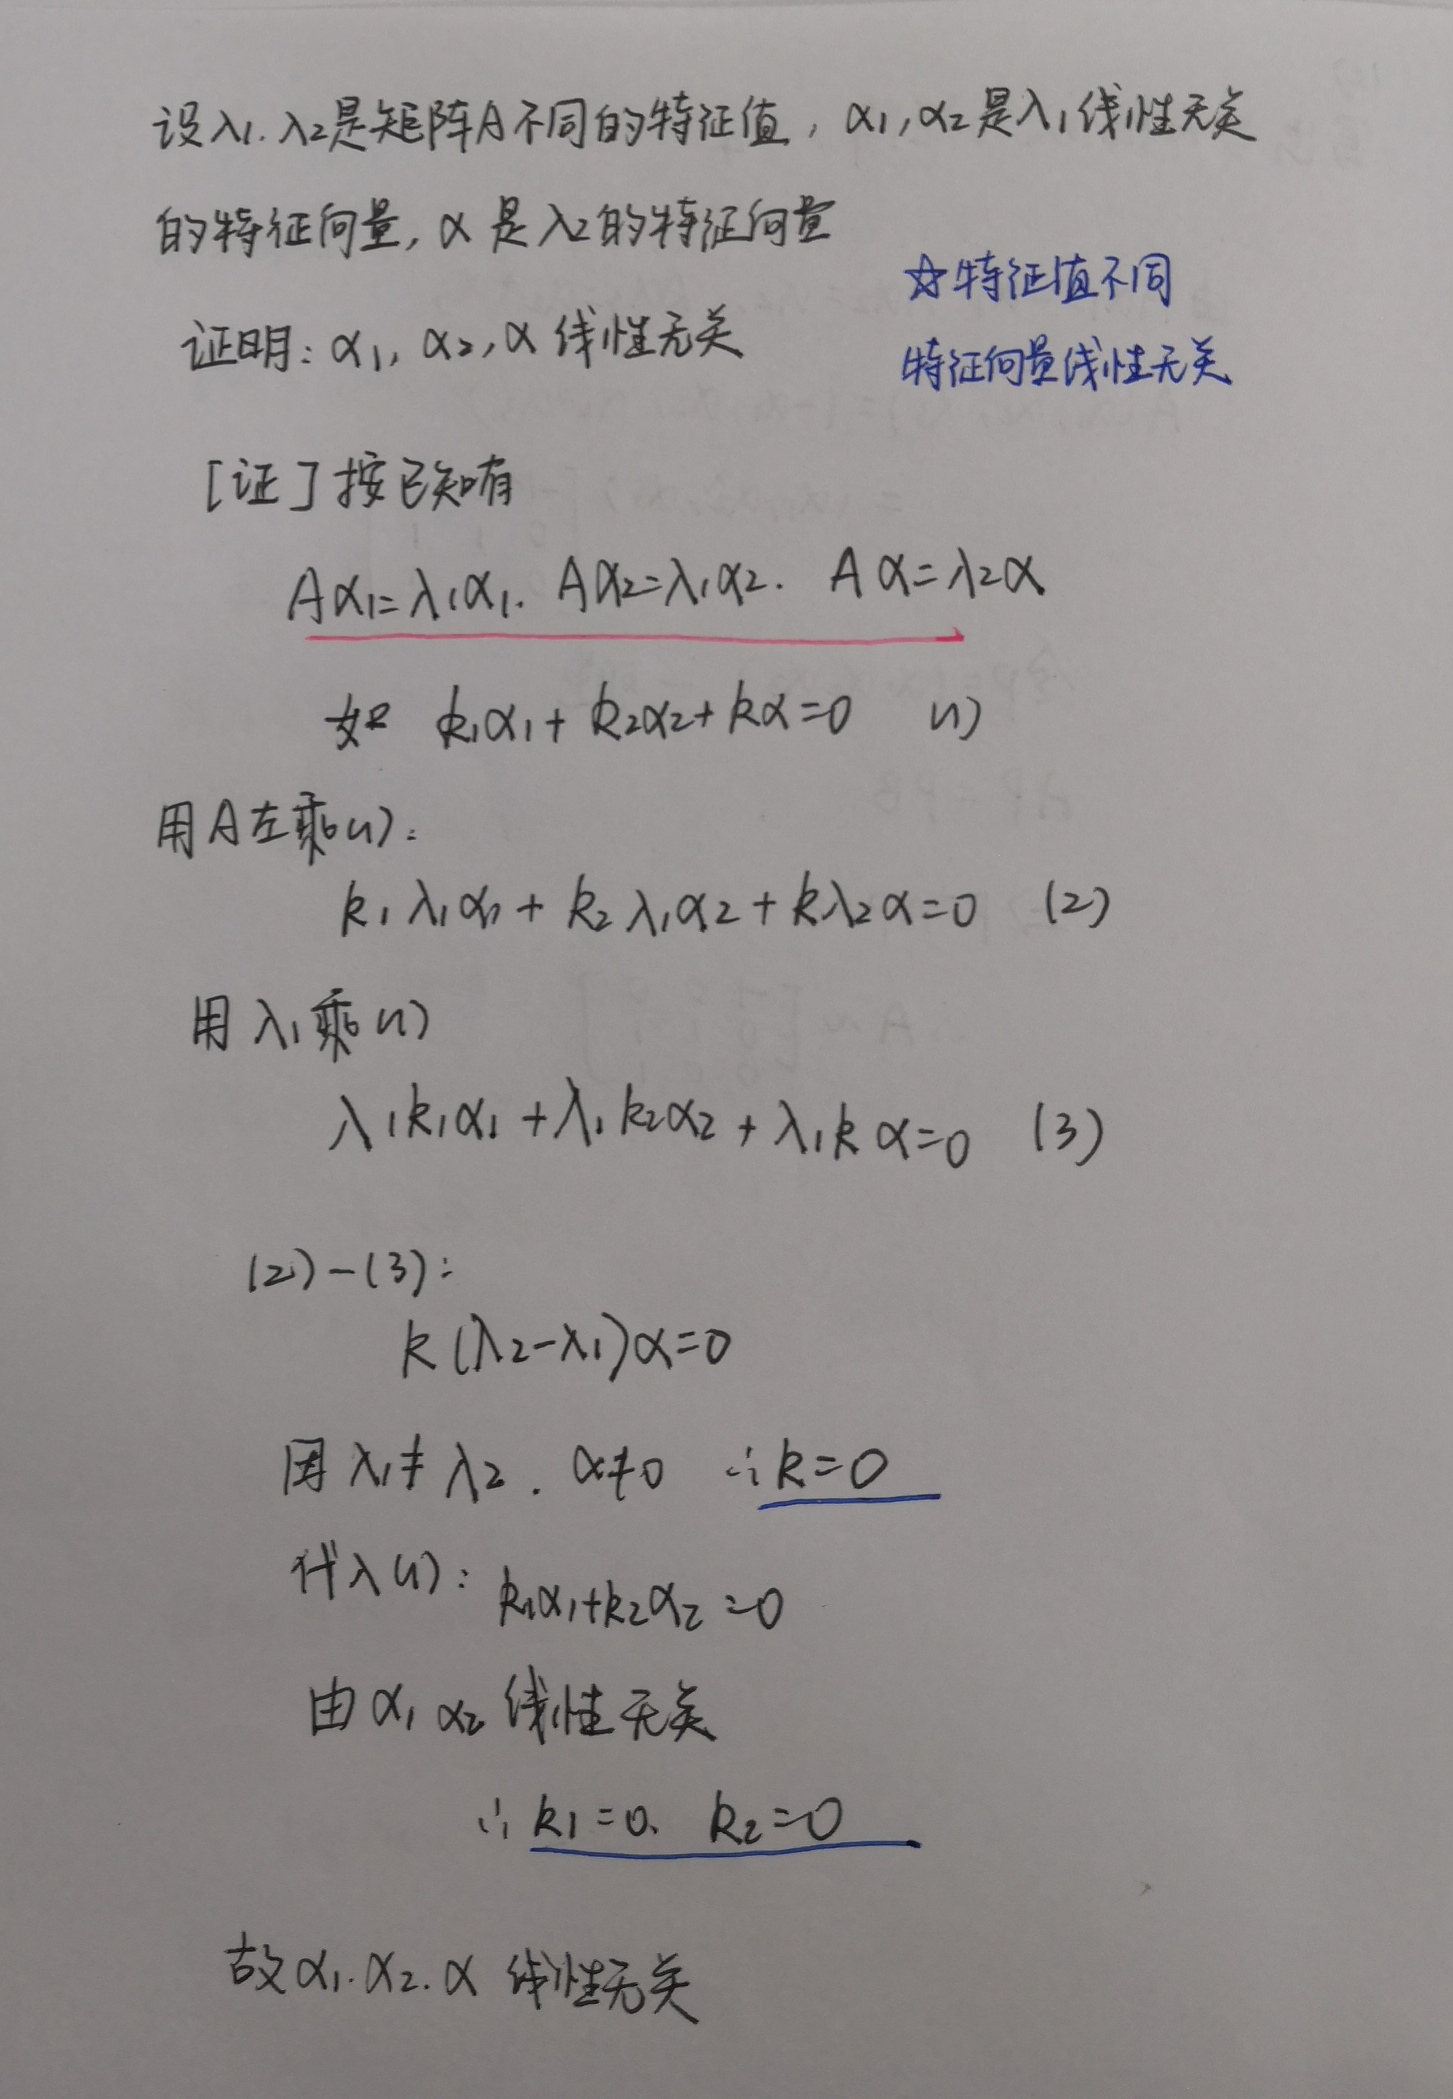 设λ1.λ2是矩阵A不同的特征值，α1,α2是λ1线性无关
的特征向量,α是λ2的特征向量
☆特征值不同
证明：α1,α2,α线性无关
特征向量线性无关
[证]按已知有
Aα1=λ1α1. Aα2=λ1α2. Aα=λ2α
如 k1α1+k2α2+kα=0 (1)
用A左乘(1):
k1λ1α1+k2λ1α2+kλ2α=0 (2)
用λ1乘(1)
λ1k1α1+λ1k2α2+λ1kα=0 (3)
(2)-(3):
k(λ2-λ1)α=0
因λ1≠λ2. α≠0 ∴k=0
代入(1):k1α1+k2α2=0
由α1 α2线性无关
∴k1=0. k2=0
故α1.α2.α线性无关